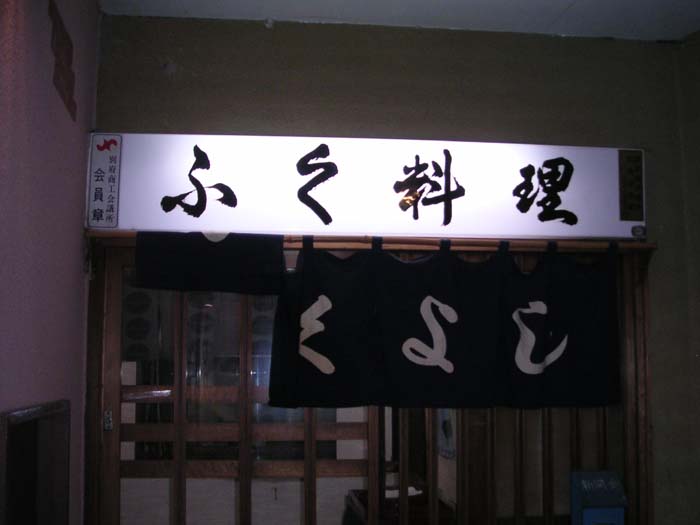 別府商工会議所
会員章
ふく料理
くよし